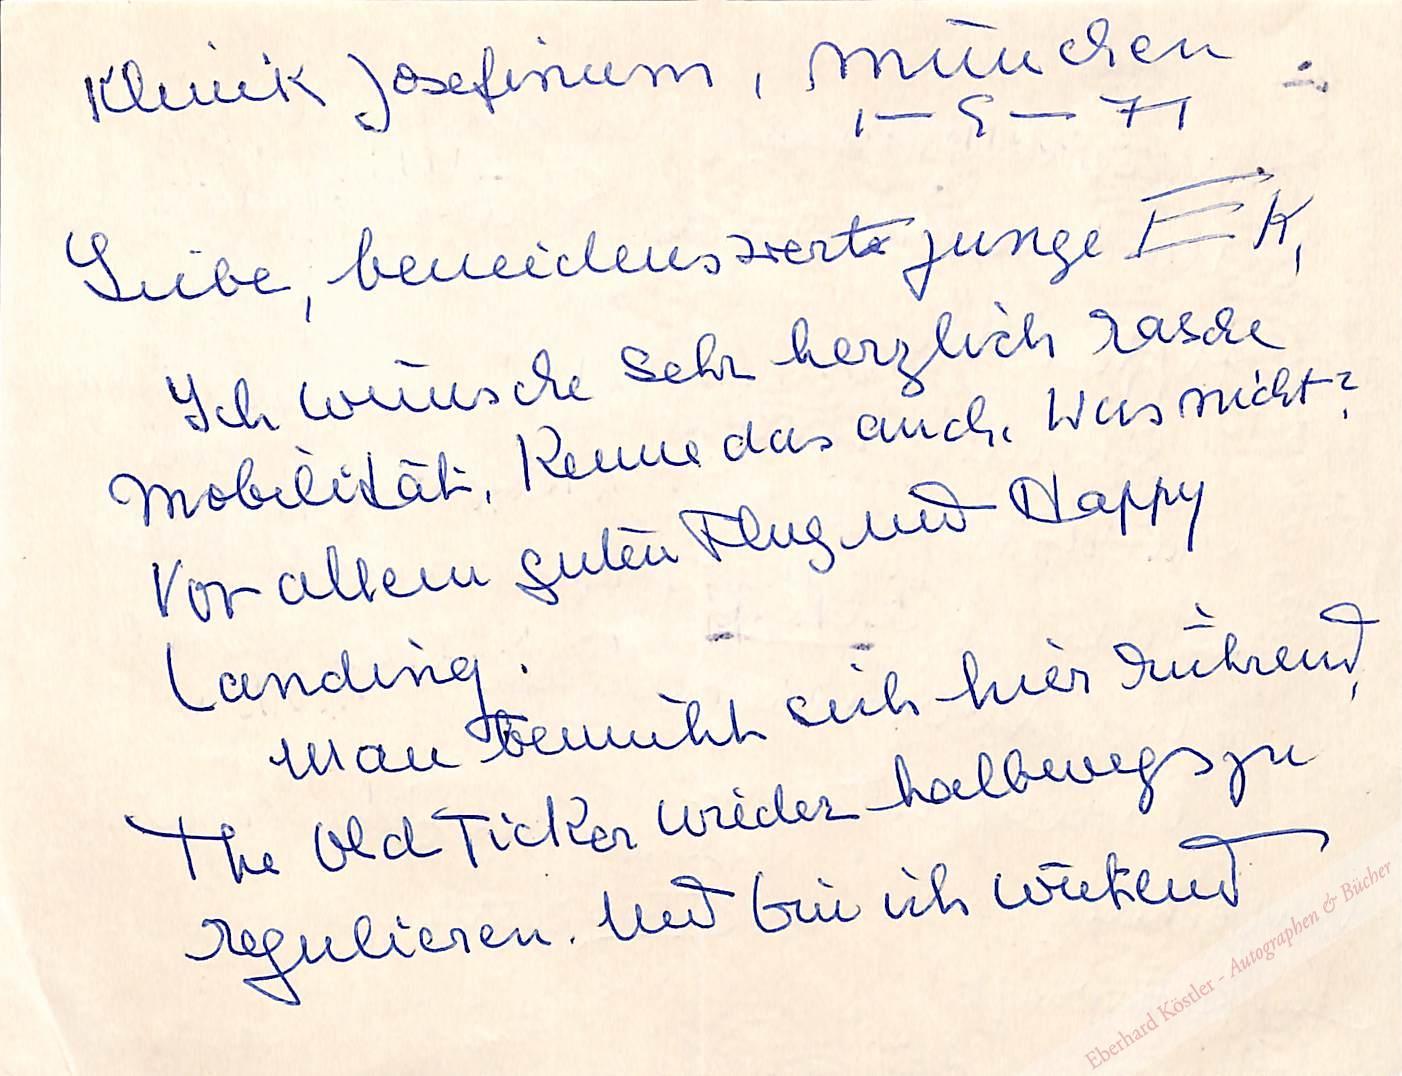 Klinik Josefinum, München
1-5-71
Liebe, beneidenswerte junge EK,
Ich wünsche sehr herzlich rasche
Mobilität. Kenne das auch. Was nicht?
Vor allem guten Flug und Happy
Landing.
Man bemüht sich hier rührend,
The Old Ticker wieder halbwegs zu
regulieren. Und bin ich wütend
Eberhard Köstler - Autographen & Bücher